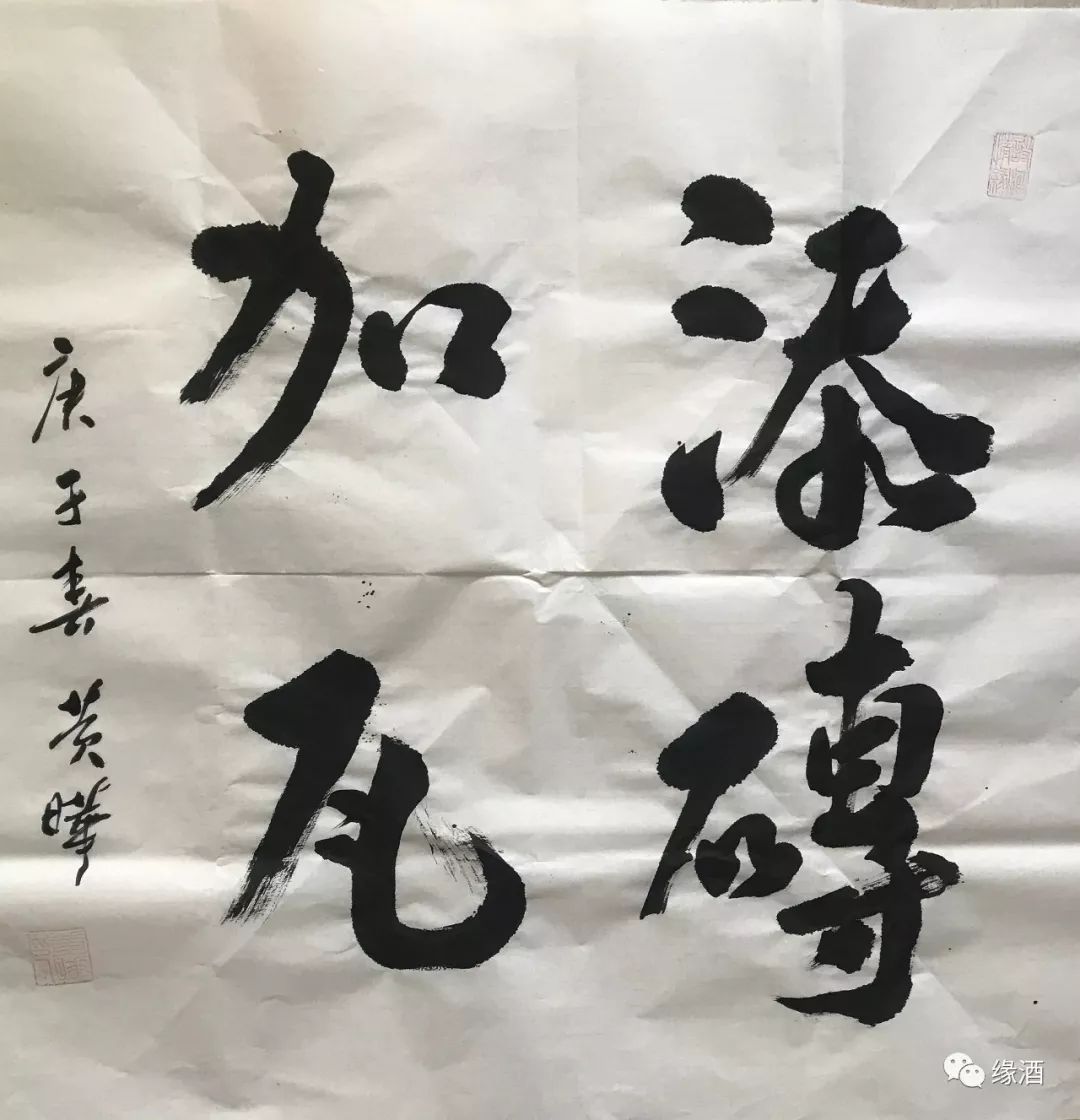 添磚
加瓦
庚子春 黄曄
缘酒